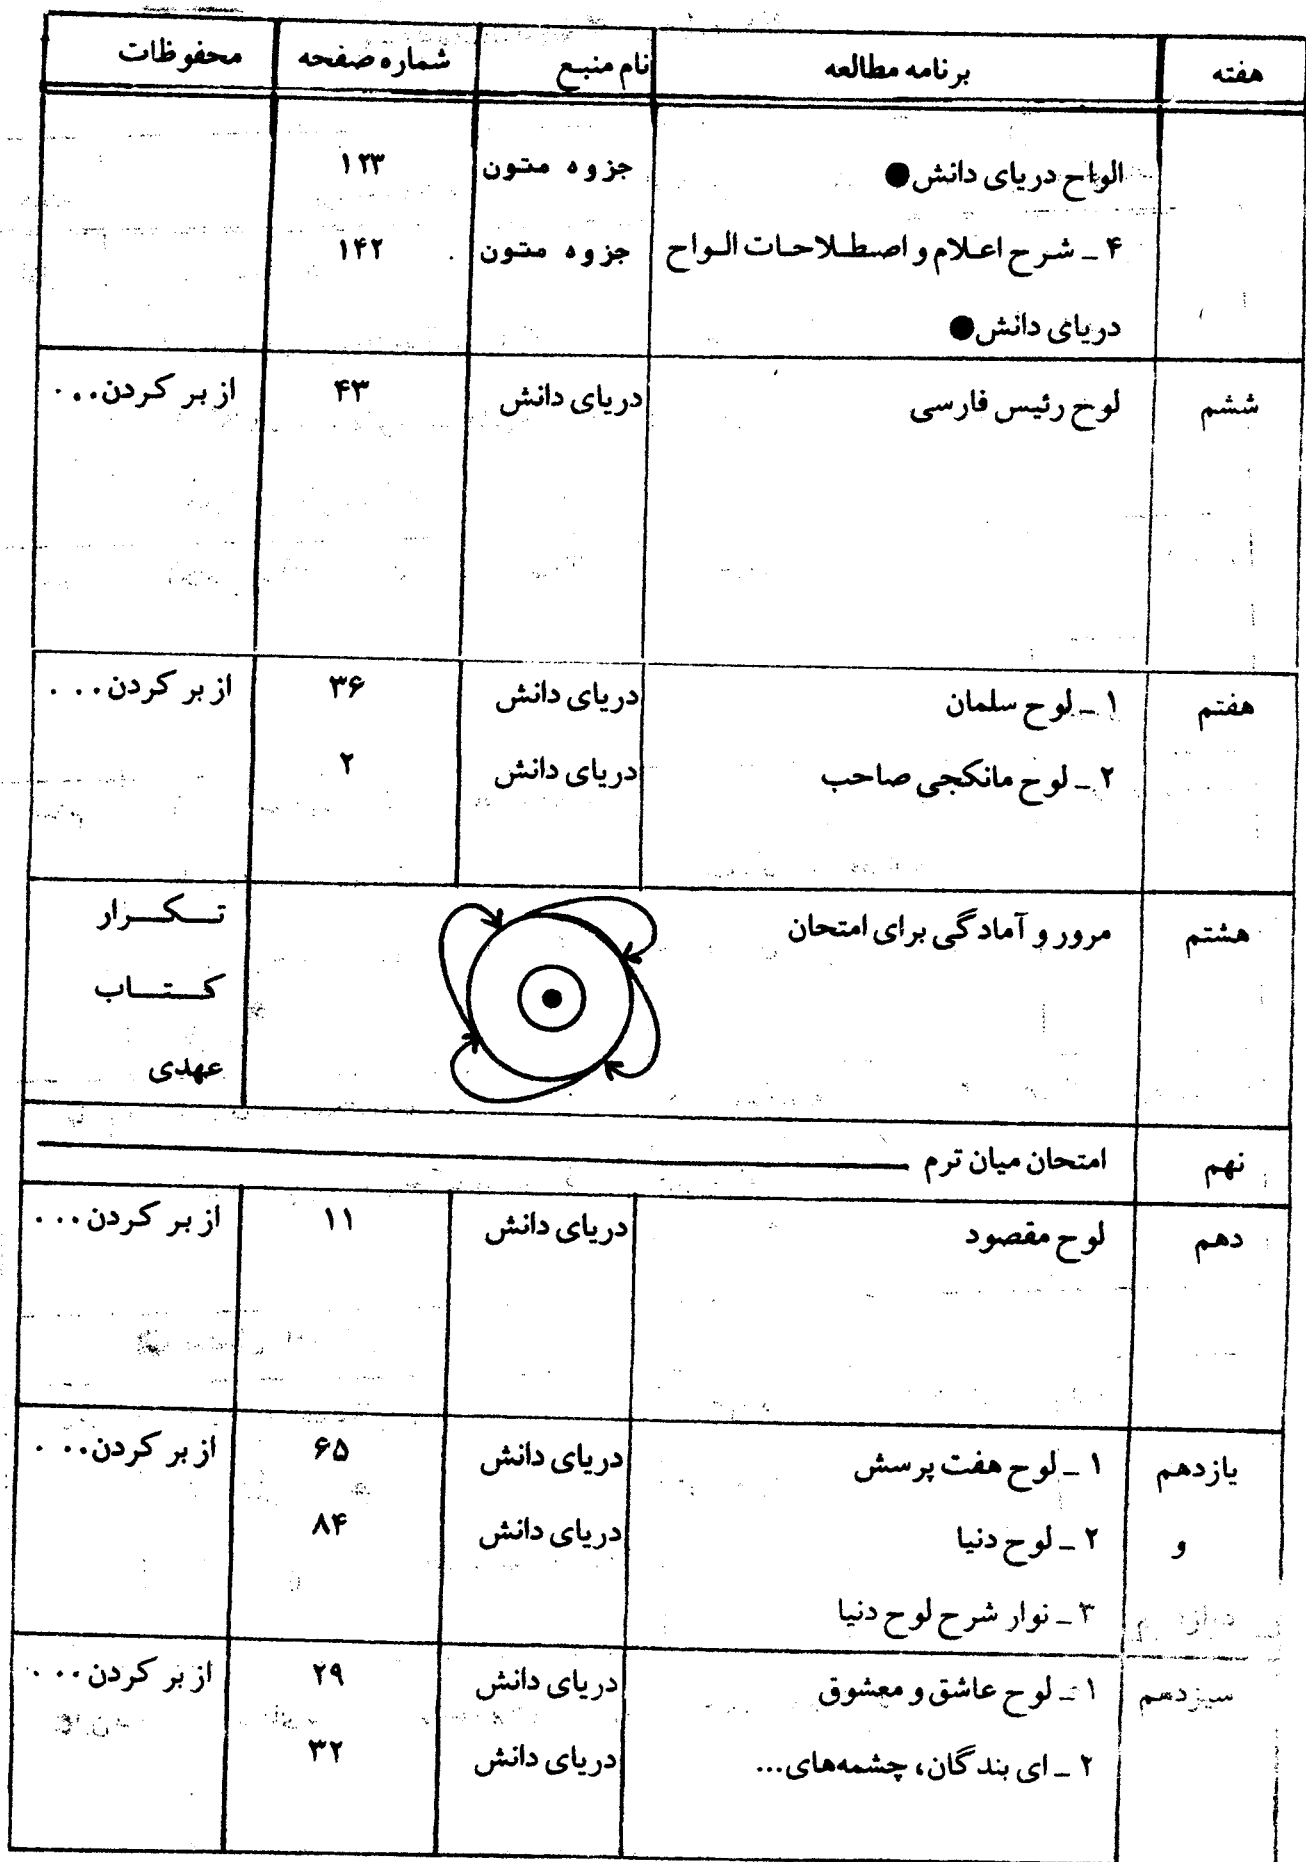 هفته برنامه مطالعه نام منبع شماره صفحه محفوظات
الواح دریای دانش● جزوه متون ۱۲۳
۴ ـ شرح اعلام و اصطلاحات الواح جزوه متون ۱۴۲
دریای دانش●
ششم لوح رئیس فارسی دریای دانش ۴۳ از بر کردن...
هفتم ۱ ـ لوح سلمان دریای دانش ۳۶ از بر کردن...
۲ ـ لوح مانکجی صاحب دریای دانش ۲
هشتم مرور و آمادگی برای امتحان تکرار
کتاب
عهدی
نهم امتحان میان ترم
دهم لوح مقصود دریای دانش ۱۱ از بر کردن...
یازدهم ۱ ـ لوح هفت پرسش دریای دانش ۶۵ از بر کردن...
و ۲ ـ لوح دنیا دریای دانش ۸۴
۳ ـ نوار شرح لوح دنیا
سیزدهم ۱ ـ لوح عاشق و معشوق دریای دانش ۲۹ از بر کردن...
۲ ـ ای بندگان، چشمه‌های... دریای دانش ۳۲